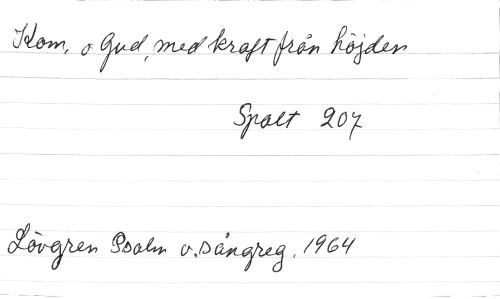 Kom, o Gud, med kraft från höjden
Spalt 207
Lövgren Psalm o. sångreg. 1964